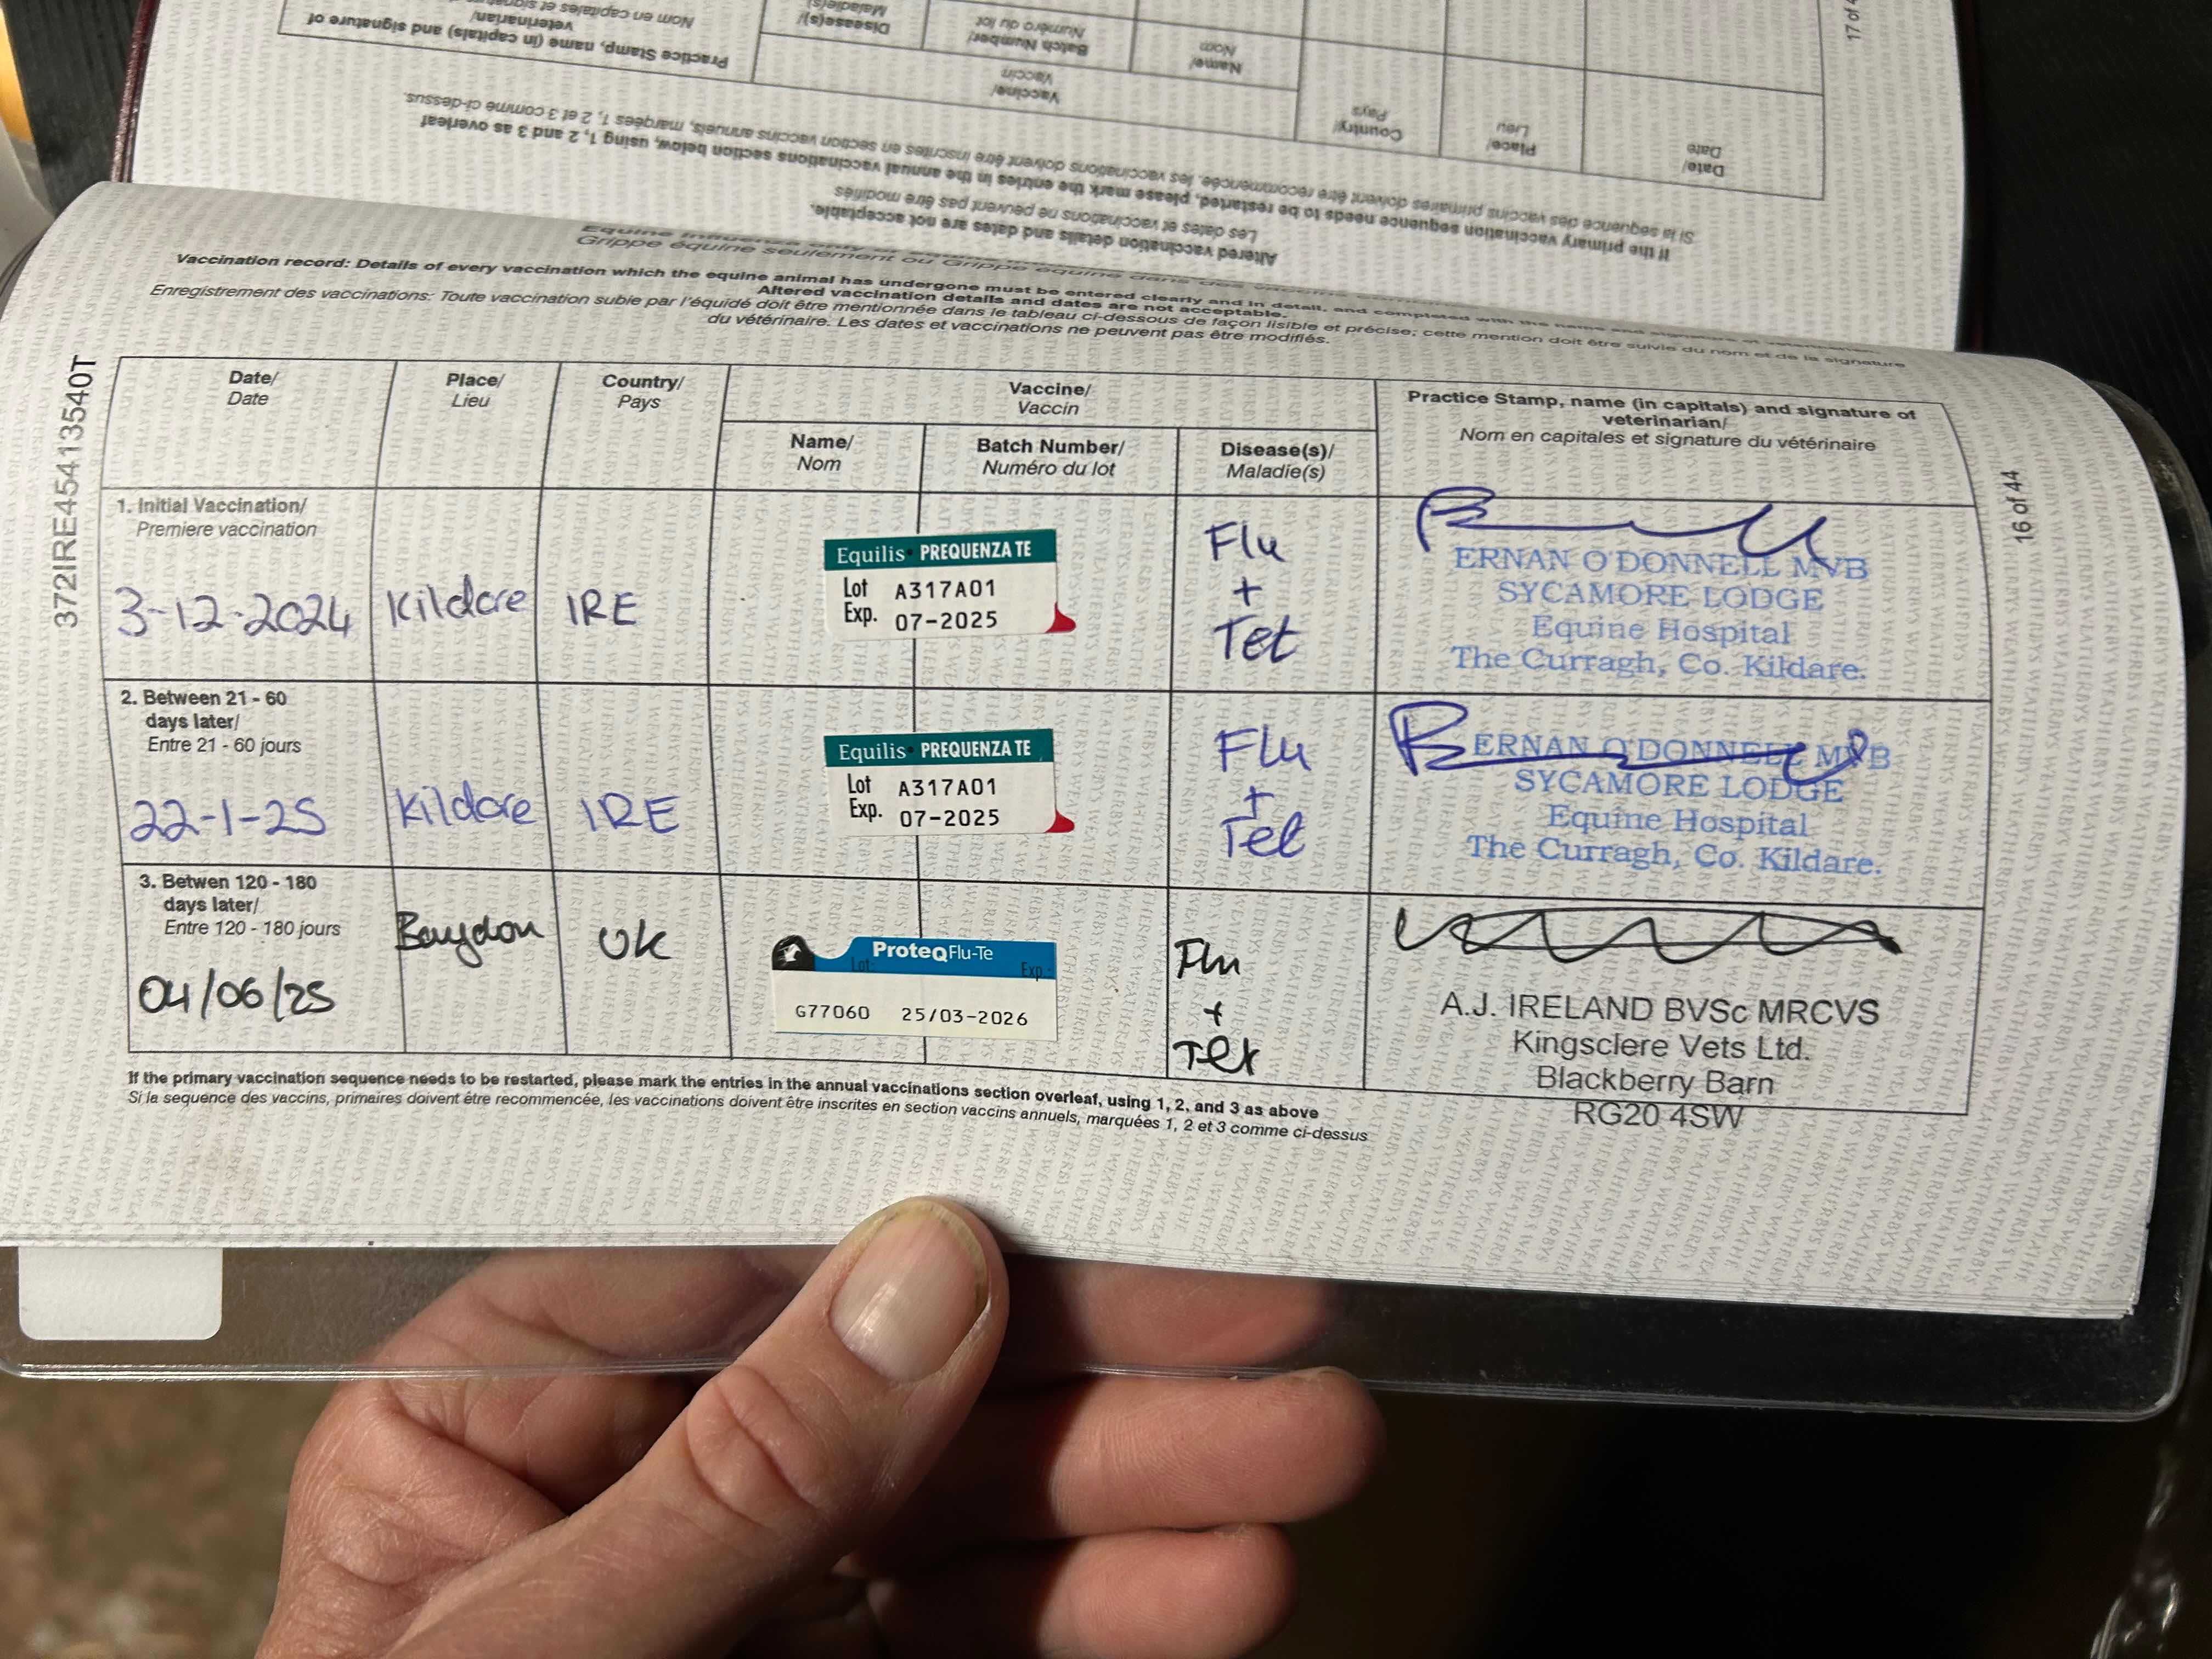 Practice Stamp, name (in capitals) and signature of
veterinarian/
Nom en capitales et signature
Vaccine/
Vaccin
Name/
Nom
Batch Number/
Numéro du lot
Disease(s)/
Maladie(s)
Country/
Pays
Place/
Lieu
Date/
Date
17 of
If the primary vaccination sequence needs to be restarted, please mark the entries in the annual vaccinations section below, using 1, 2 and 3 as overleaf
Si la sequence des vaccins primaires doivent être recommencée, les vaccinations doivent être inscrites en section vaccins annuels, marqées 1, 2 et 3 comme ci-dessus.
Altered vaccination details and dates are not acceptable.
Les dates et vaccinations ne peuvent pas être modifiés
Equine Influenza only or
Grippe équine seulement ou Grippe équine dans des
Vaccination record: Details of every vaccination which the equine animal has undergone must be entered clearly and in detail, and completed with the name and signature
Altered vaccination details and dates are not acceptable.
Enregistrement des vaccinations: Toute vaccination subie par l'équidé doit être mentionnée dans le tableau ci-dessous de façon lisible et précise; cette mention doit être suivie du nom et de la signature
du vétérinaire. Les dates et vaccinations ne peuvent pas être modifiés.
372IRE45413540T
16 of 44
Date/
Date
Place/
Lieu
Country/
Pays
Vaccine/
Vaccin
Name/
Nom
Batch Number/
Numéro du lot
Disease(s)/
Maladie(s)
Practice Stamp, name (in capitals) and signature of
veterinarian/
Nom en capitales et signature du vétérinaire
1. Initial Vaccination/
Premiere vaccination
3-12-2024
Kildare
IRE
Equilis PREQUENZA TE
Lot A317A01
Exp. 07-2025
Flu
+
Tet
ERNAN O'DONNELL MVB
SYCAMORE LODGE
Equine Hospital
The Curragh, Co. Kildare.
2. Between 21 - 60
days later/
Entre 21 - 60 jours
22-1-25
Kildare
IRE
Equilis PREQUENZA TE
Lot A317A01
Exp. 07-2025
Flu
+
Tet
ERNAN O'DONNELL MVB
SYCAMORE LODGE
Equine Hospital
The Curragh, Co. Kildare.
3. Betwen 120 - 180
days later/
Entre 120 - 180 jours
04/06/25
Baydon
UK
ProteqFlu-Te
Lot: Exp.:
G77060 25/03-2026
Flu
+
Tet
A.J. IRELAND BVSc MRCVS
Kingsclere Vets Ltd.
Blackberry Barn
RG20 4SW
If the primary vaccination sequence needs to be restarted, please mark the entries in the annual vaccinations section overleaf, using 1, 2, and 3 as above
Si la sequence des vaccins, primaires doivent être recommencée, les vaccinations doivent être inscrites en section vaccins annuels, marquées 1, 2 et 3 comme ci-dessus